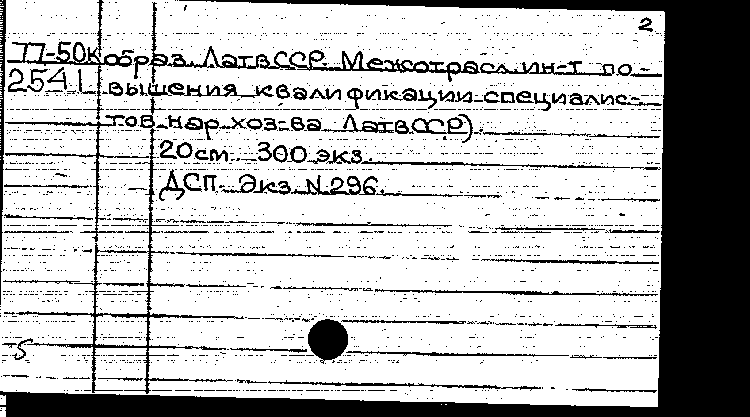 2
77-50К образ. ЛатвССР. Межотрасл. ин-т по-
2541 вышения квалификации специалис-
тов нар. хоз-ва ЛатвССР).
20см. 300 экз.
ДСП. Экз. N 296.
5